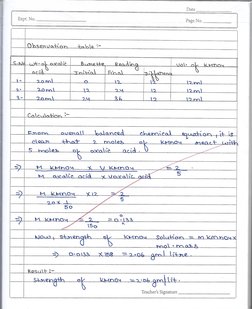 Date
Expt. No.
Page No.
Observation table :-
S.No. wt. of oxalic Burette Reading Vol. of KMnO4
acid Initial Final Difference
1- 20ml 0 12 12 12ml
2- 20ml 12 24 12 12ml
3- 20ml 24 36 12 12ml
Calculation :-
From overall balanced chemical equation, it is
clear that 2 moles of KMnO4 react with
5 moles of oxalic acid.
=> M KMnO4 x V KMnO4 = 2
M oxalic acid x V oxalic acid 5
=> M KMnO4 x 12 = 2
20 x 1 5
50
=> M KMnO4 = 2 = 0.0133
150
Now, Strength of KMnO4 solution = M KMnO4 x
mol. mass
=> 0.0133 x 158 = 2.06 gm/ litre.
Result :-
Strength of KMnO4 = 2.06 gm/lit.
Teacher's Signature